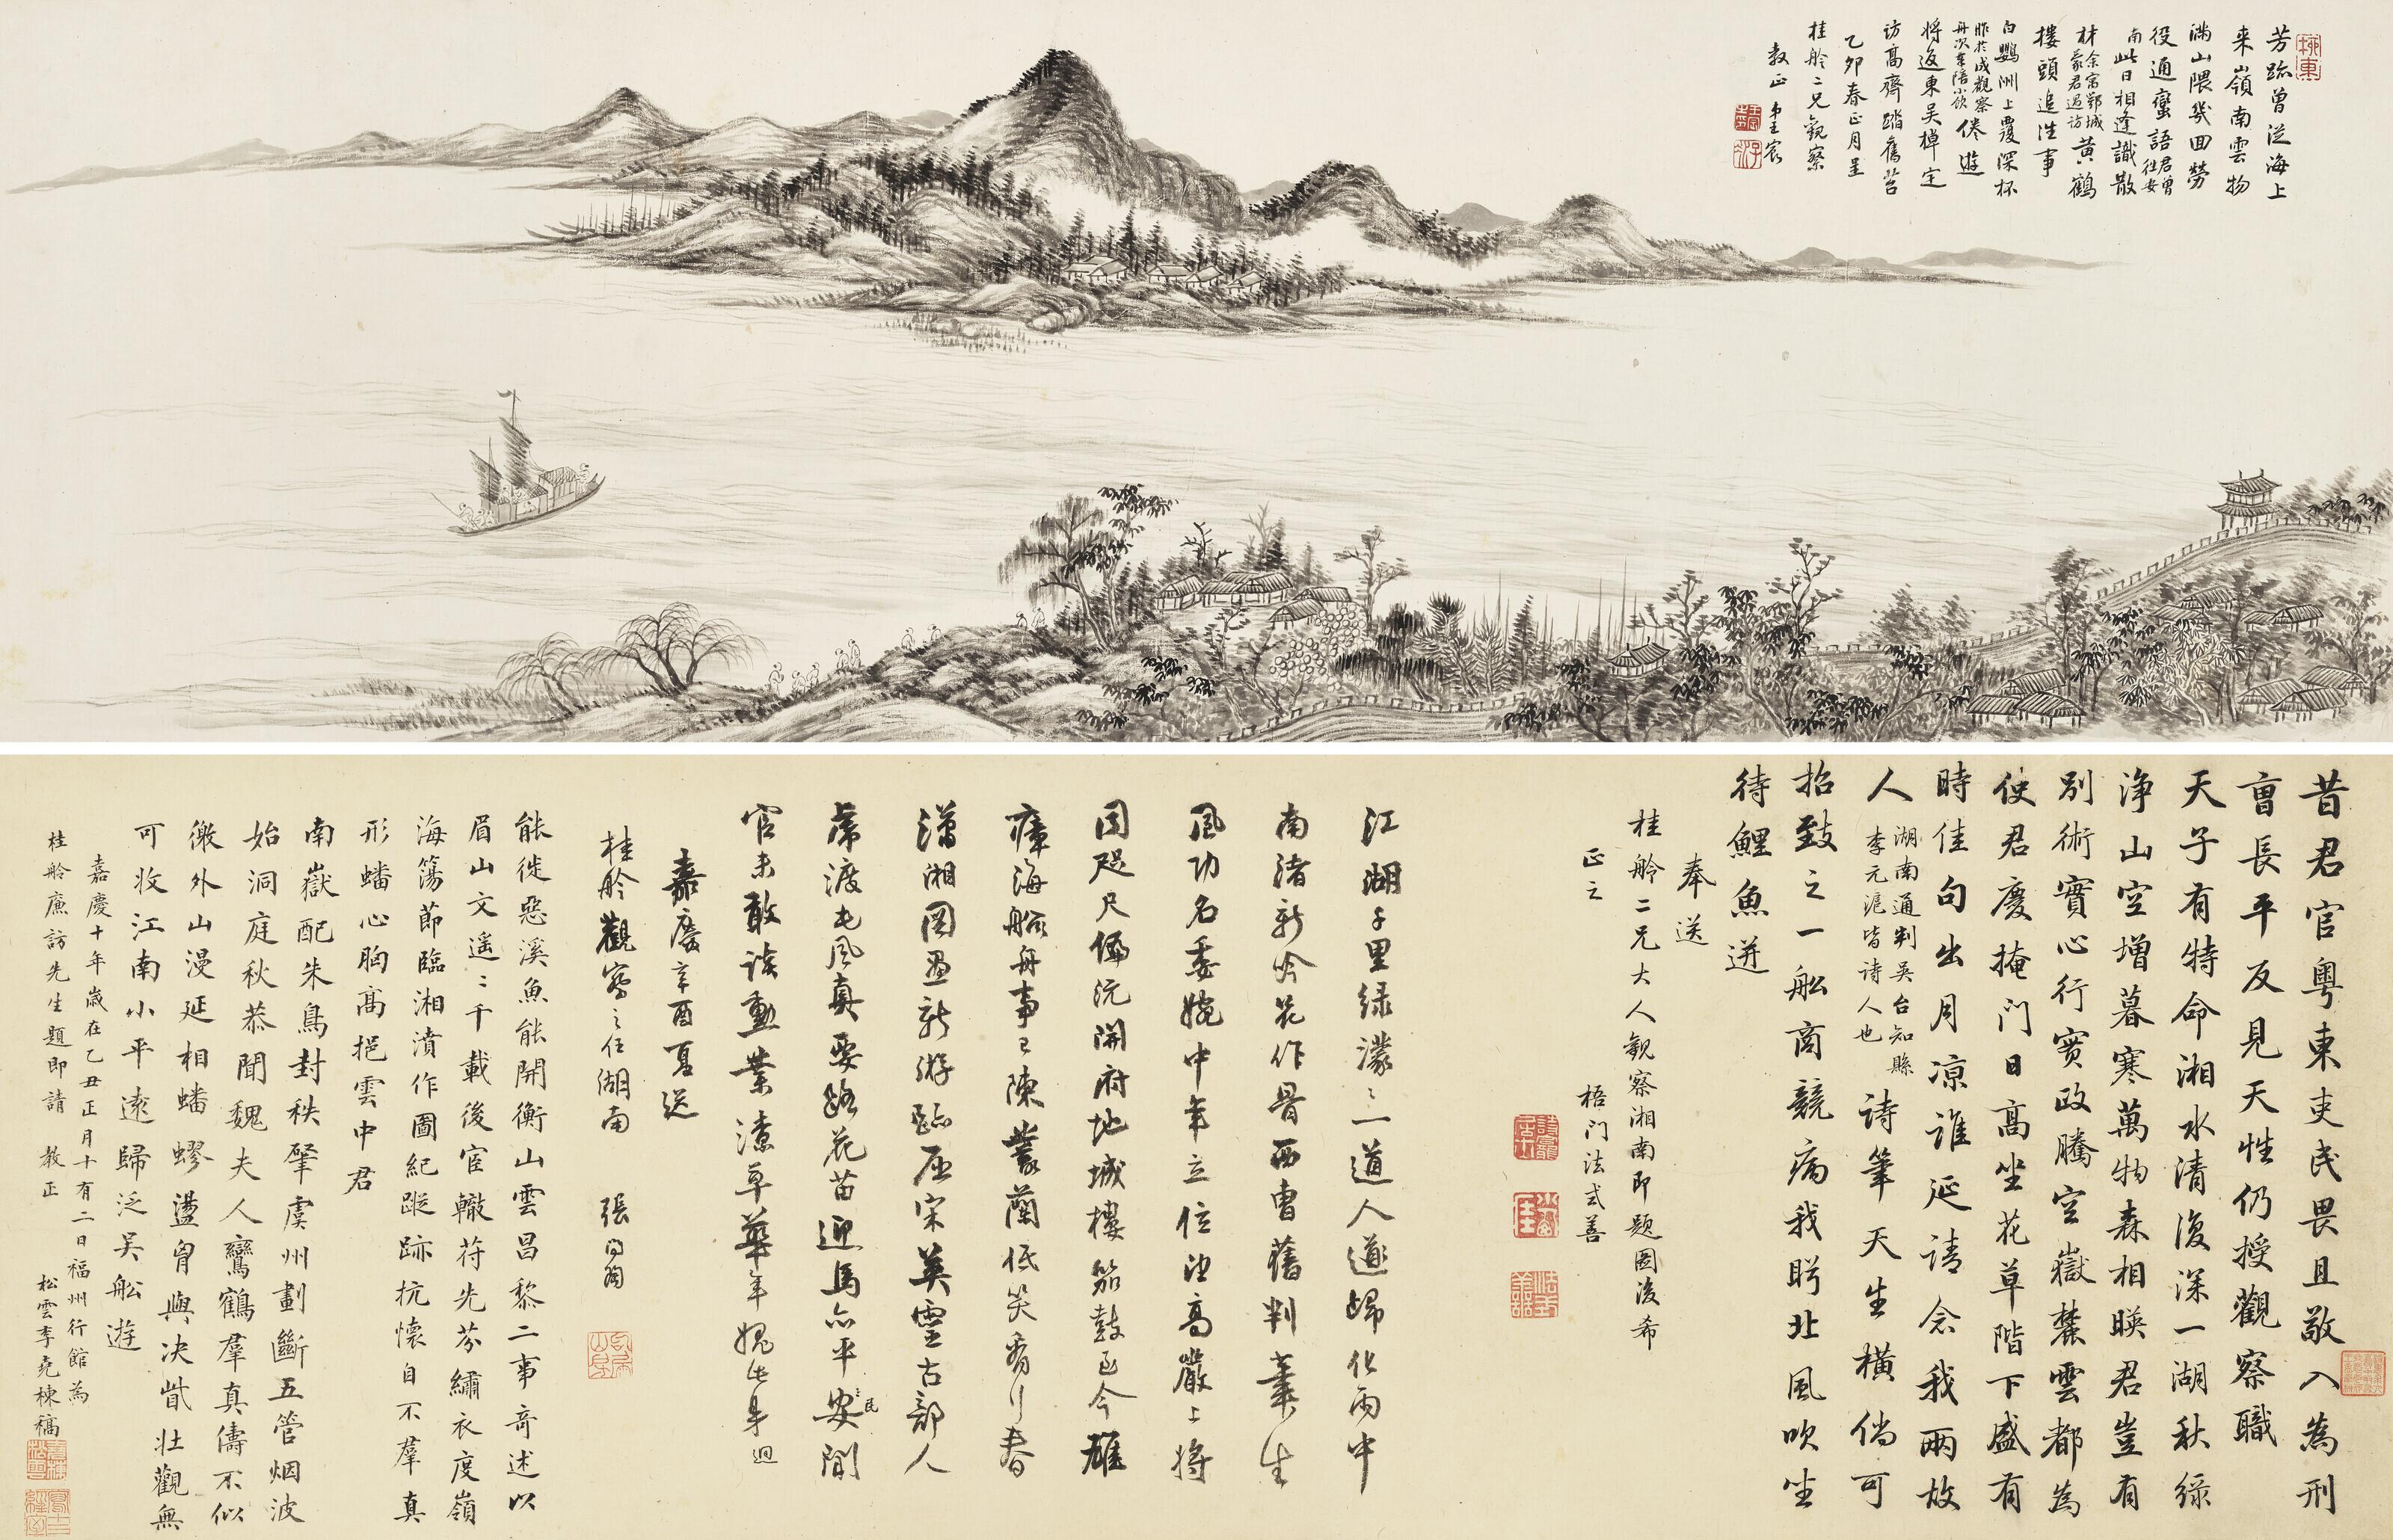 芳躅曾從海上
来嶺南雲物
滿山隈幾回勞
役通蠻語君曾往安
南此日相逢識散
材余寓鄂城蒙君過訪黄鶴
樓頭追往事
白鸚洲上覆深杯
昨於成觀察舟次東陪小飲倦遊
將返東吳棹定
訪高齋踏舊苔
乙卯春正月呈
桂舲二兄觀察
教正 弟王宸
昔君官粤東吏民畏且敬入為刑
曹長平反見天性仍授觀察職
天子有特命湘水清復深一湖秋緑
浄山空增暮寒萬物森相暎君豈有
別術實心行實政騰空嶽麓雲都為
使君慶掩門日高坐花草階下盛有
時佳句出月凉誰延請念我兩故
人湖南通判吳台知縣李元滬皆詩人也詩筆天生橫倘可
招致之一船商競病我盼北風吹坐
待鯉魚迸
奉送
桂舲二兄大人觀察湘南即題圖後希
正之 梧門法式善
江湖千里緑濛〻一道人遥歸化雨中
南渚新吟花作骨西曹舊判筆生
風功名委婉中年立位望高嚴上將
同咫尺偏沅開府地城樓笳鼓至今雄
瘴海艅舟事已陳叢蘭低笑香行春
瀟湘圖畫新游跡屈宋英靈古部人
虎渡屯風真要路花苗迎馬亦平安民間
官未敢談勳業漂草華年媿此身迴
嘉慶辛酉夏送
桂舲觀察之任湖南 張問陶
能徙惡溪魚能開衡山雲昌黎二事奇述以
眉山文遥〻千載後宦轍苻先芬繡衣度嶺
海蕩節臨湘濆作圖紀蹤跡抗懷自不羣真
形蟠心胸高挹雲中君
南嶽配朱鳥封秩肇虞州劃斷五管烟波
始洞庭秋恭聞魏夫人鸞鶴羣真儔不似
徼外山漫延相蟠蟉盪胷與决眥壯觀無
可收江南小平遠歸泛吳船遊
嘉慶十年歲在乙丑正月十有二日福州行館為
桂舲廉訪先生題即請 教正 松雲李堯棟稿